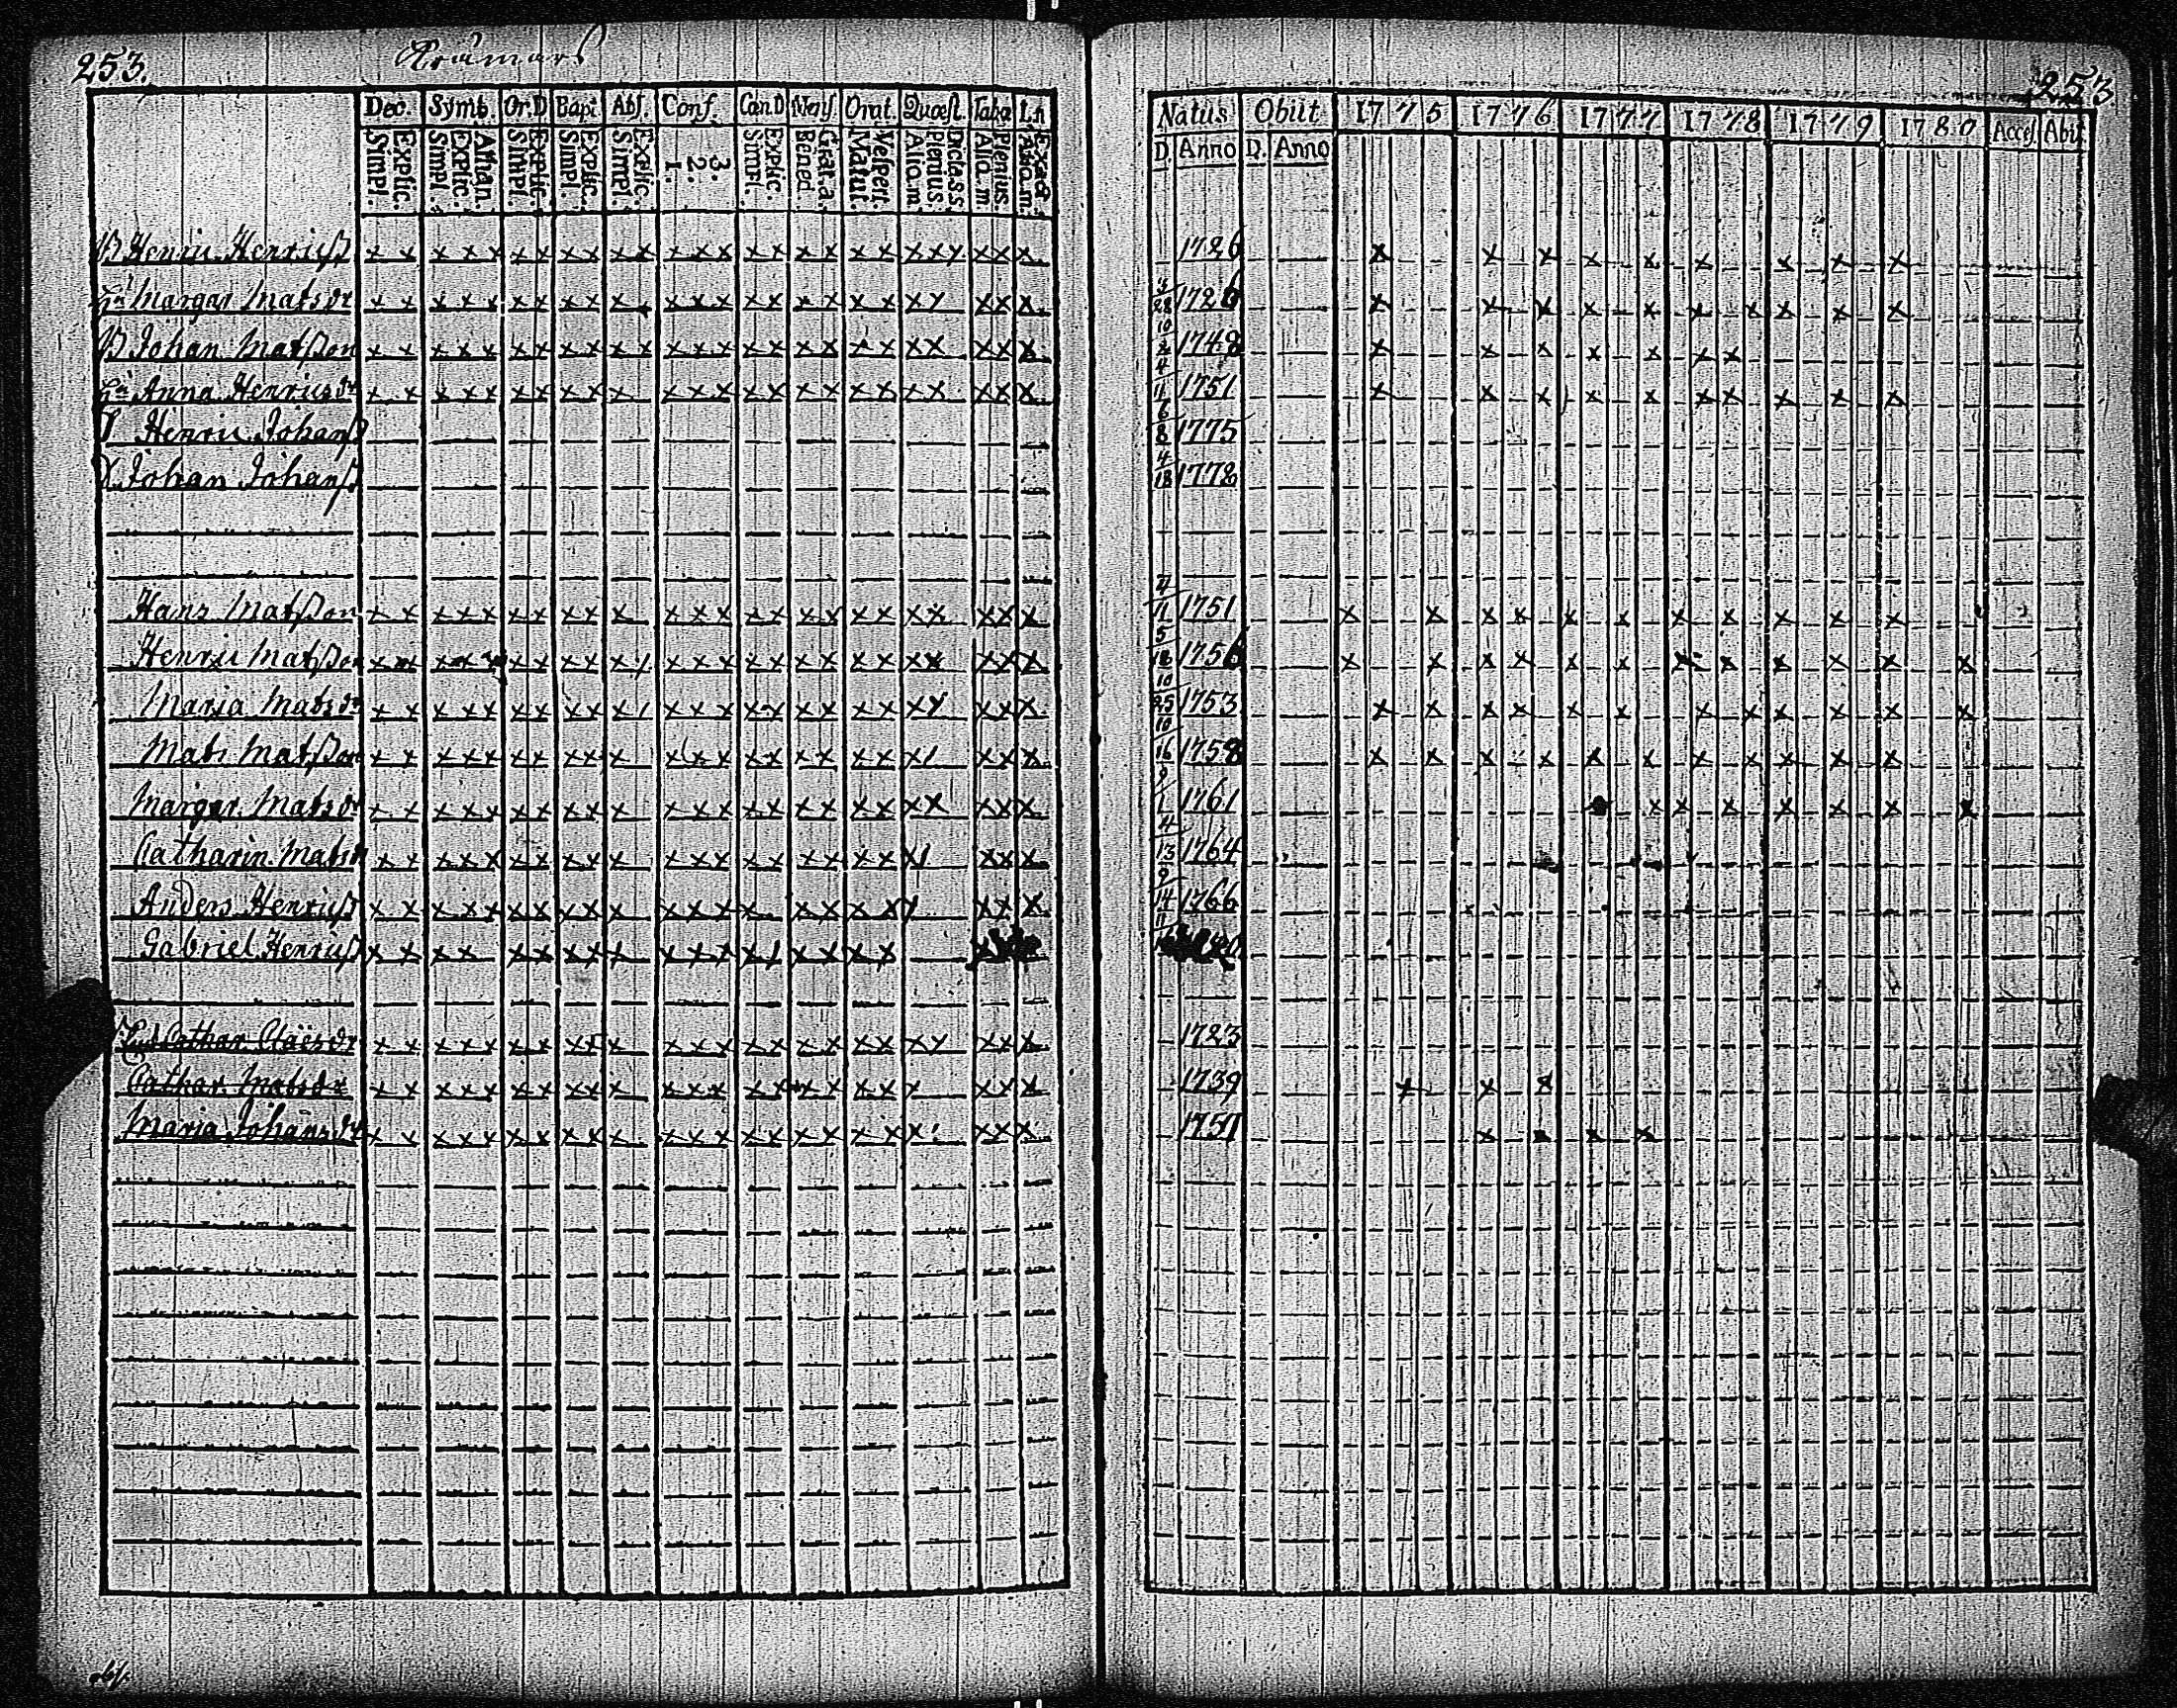 253.
253.
Dec. Symb. Or.D Bapt. Abs. Conf. Can.D Mens. Orat. Quæst. Taba
Natus Obiit 1775 1776 1777 1778 1779 1780 Acces. Abit
Simpl. Explic. Simpl. Explic. Athan. Simpl. Explic. Simpl. Explic. Simpl. Explic. 1. 2. 3. Simpl. Explic. Bened. Grat.a. Matut. Vesper. Aliq.m. Plenius. Dict.s.s. Aliq.m Plenius.
D. Anno D. Anno
Henric Henricss 1726
Margar Matsdr 1726
Johan Matsson 1748
Anna Henricsdr 4/11 1751
Henric Johanss 6/8 1775
Johan Johanss 4/18 1778
Hans Matsson 4/11 1751
Henric Matsson 5/18 1756
Maria Matsdr 10/25 1753
Mats Matsson 10/16 1758
Margar. Matsdr 9/1 1761
Catharin. Matsdr 4/13 1764
Anders Henricss 9/14 1766
Gabriel Henricss
Cathar 1723
Cathar. Matsdr 1739
Maria Johansdr 1757